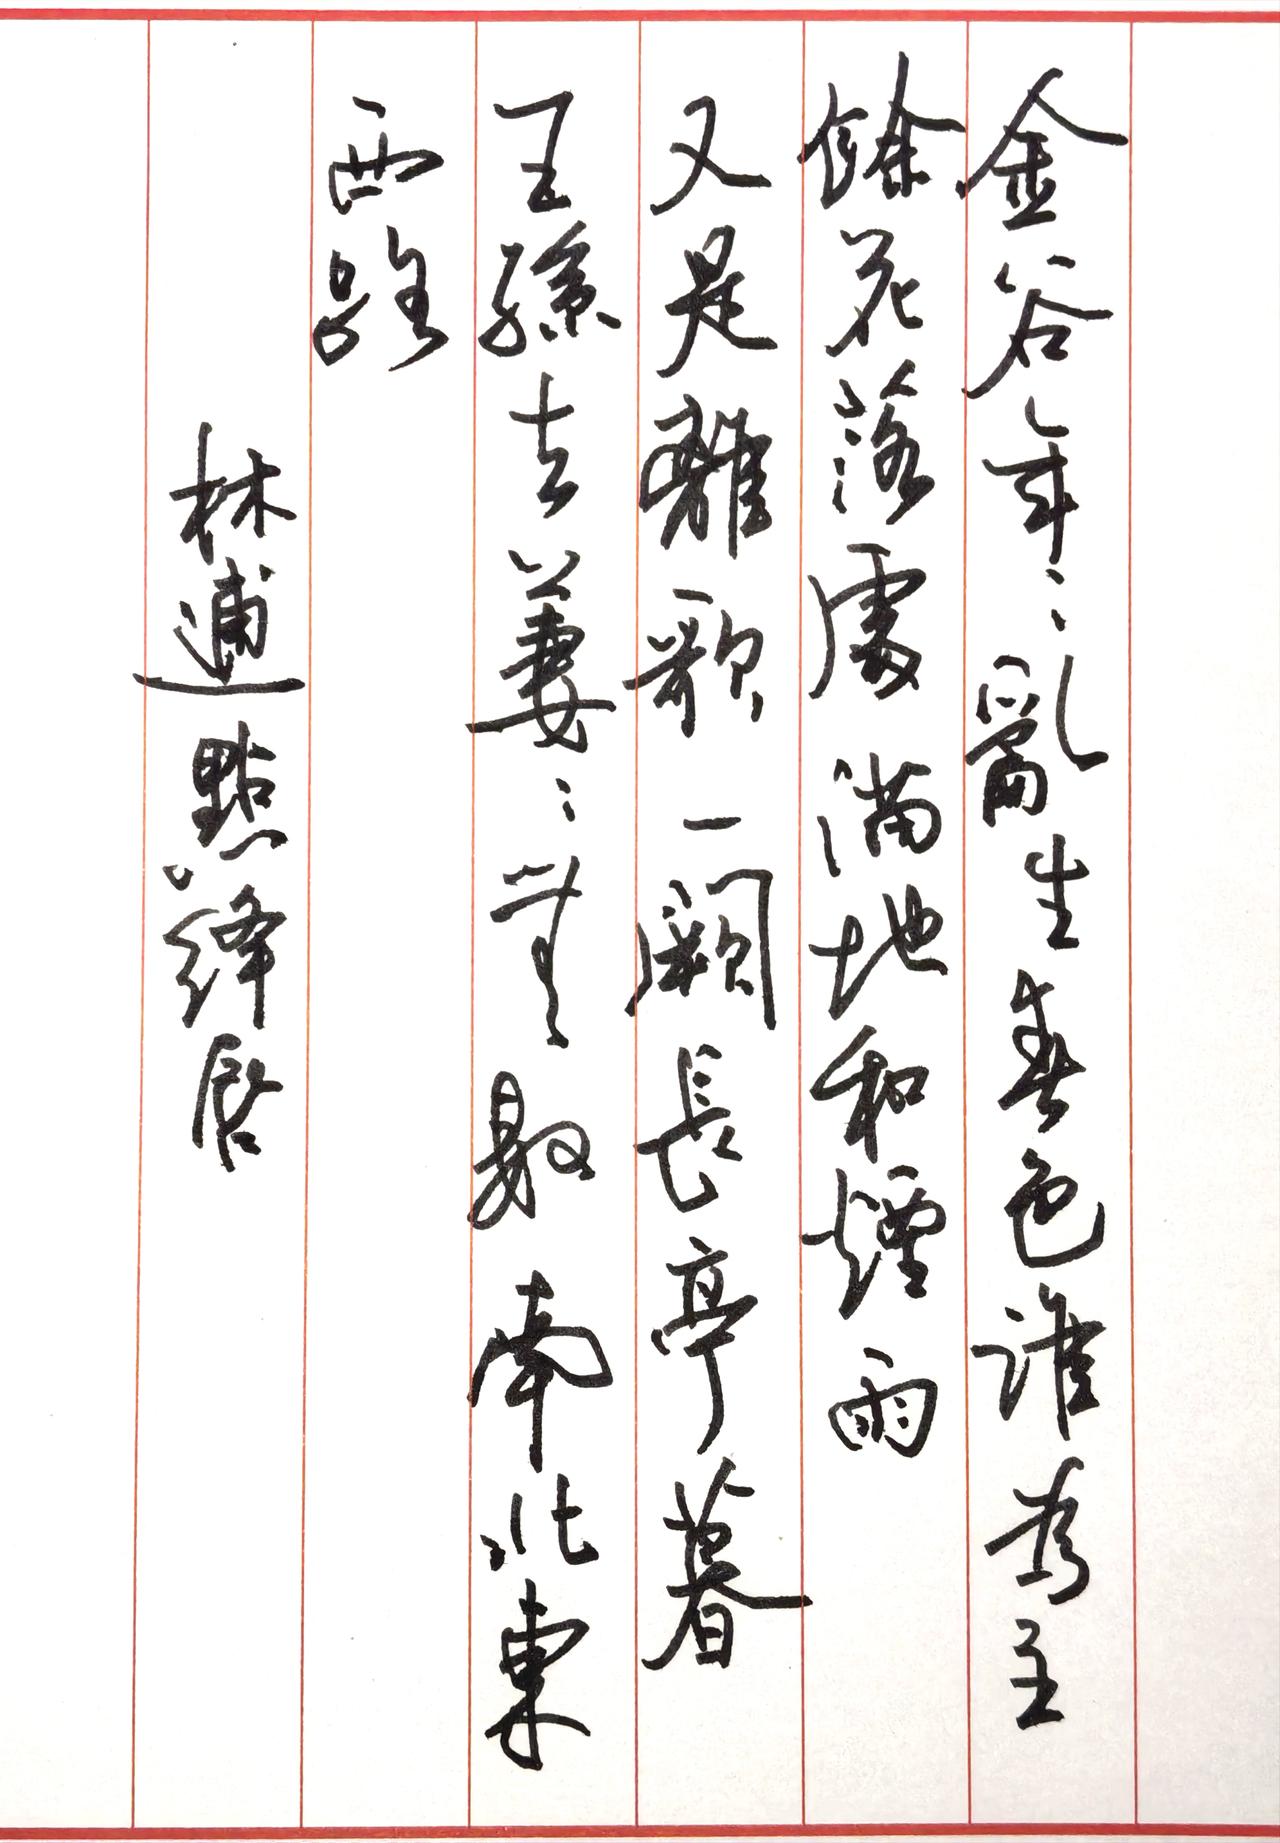 金谷年々亂生春色誰為主
餘花落處滿地和煙雨
又是離歌一闋長亭暮
王孫去萋々無數南北東
西路
林逋點絳唇